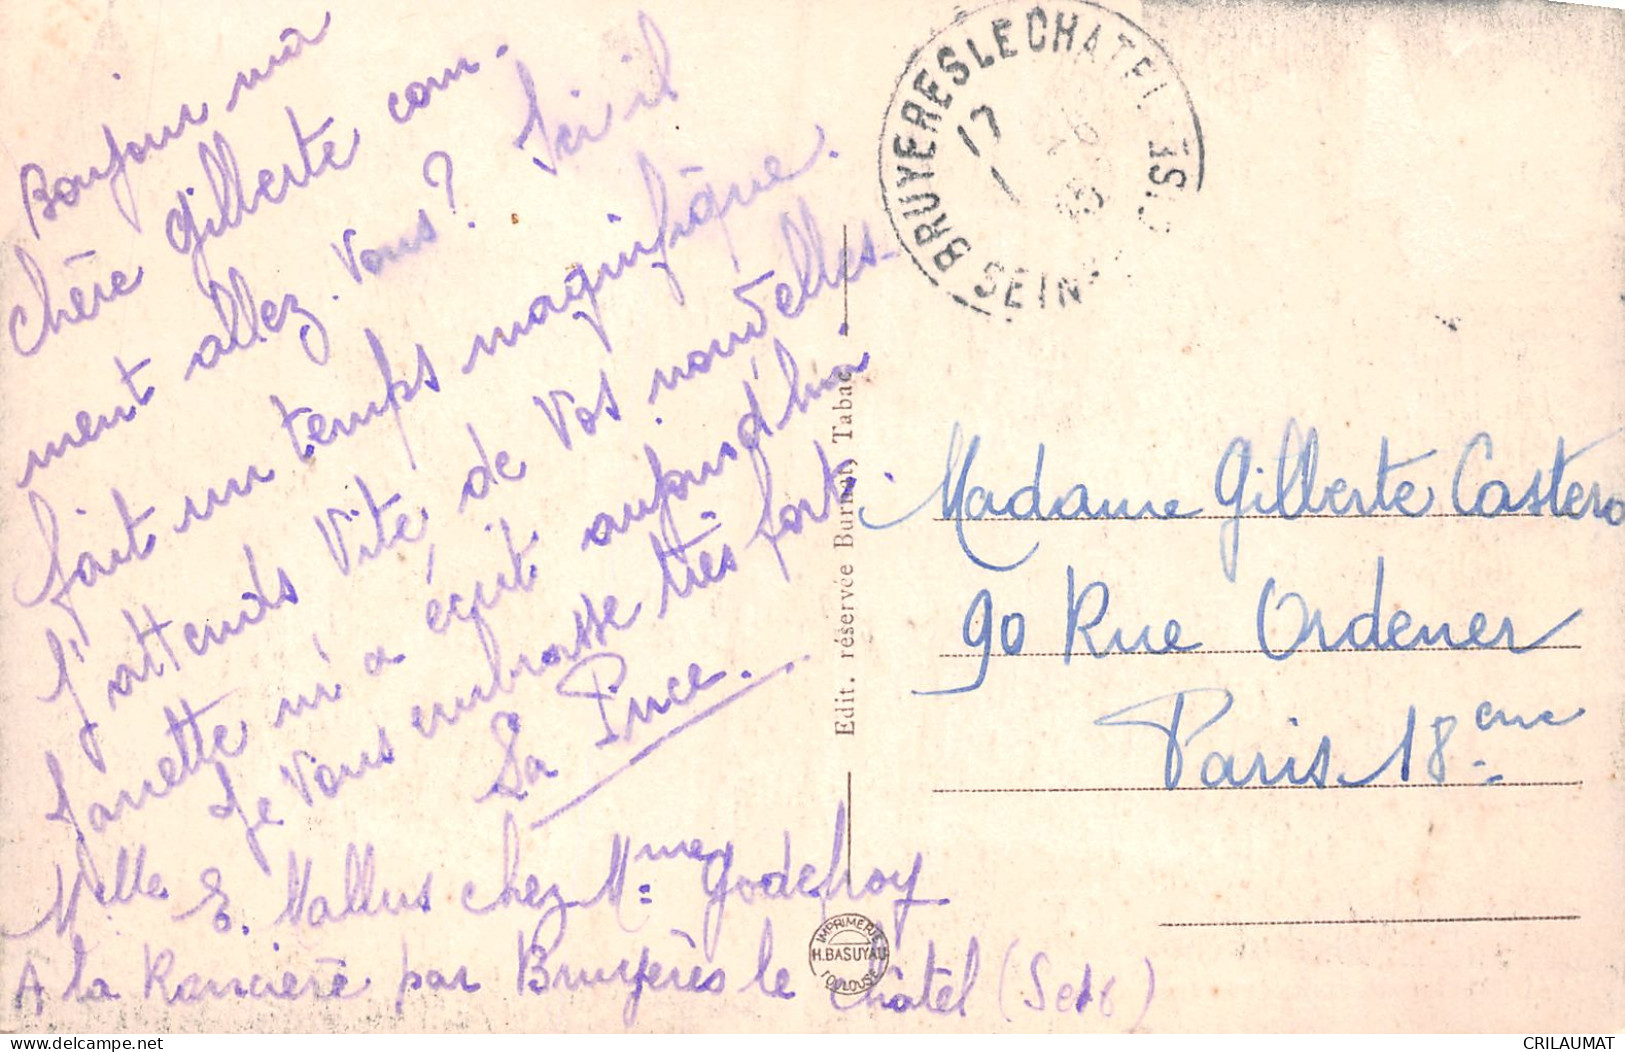 Bonjour ma
chère Gilberte com-
ment allez-vous? Ici il
fait un temps magnifique.
J'attends Vite de Vos nouvelles-
Janette m'a écrit aujourd'hui
Je Vous embrasse très fort.
Sa Puce.
Melle E. Mallus chez Mme Godefroy
A la Rancière par Bruyères le Châtel (Set O)
BRUYERES LE CHATEL
17
1
SEIN OISE
Edit. réservée Burnat, Tabac
IMPRIMERIE
H. BASUYAU
TOULOUSE
Madame Gilberte Castero
90 Rue Ordener
Paris 18eme
CRILAUMAT
www.delcampe.net